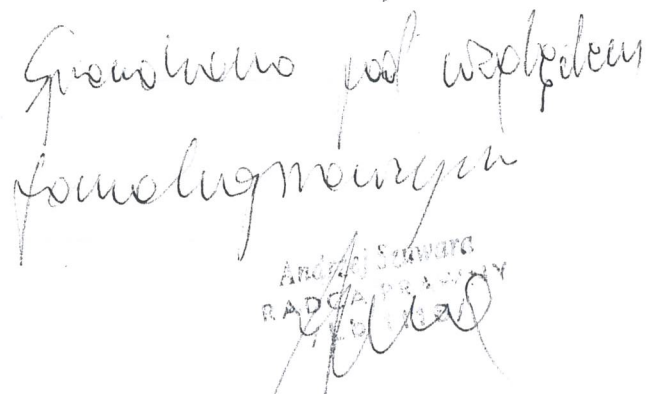 Sprawdzono pod względem
formalnoprawnym
Andrzej Szuwara
RADCA PRAWNY